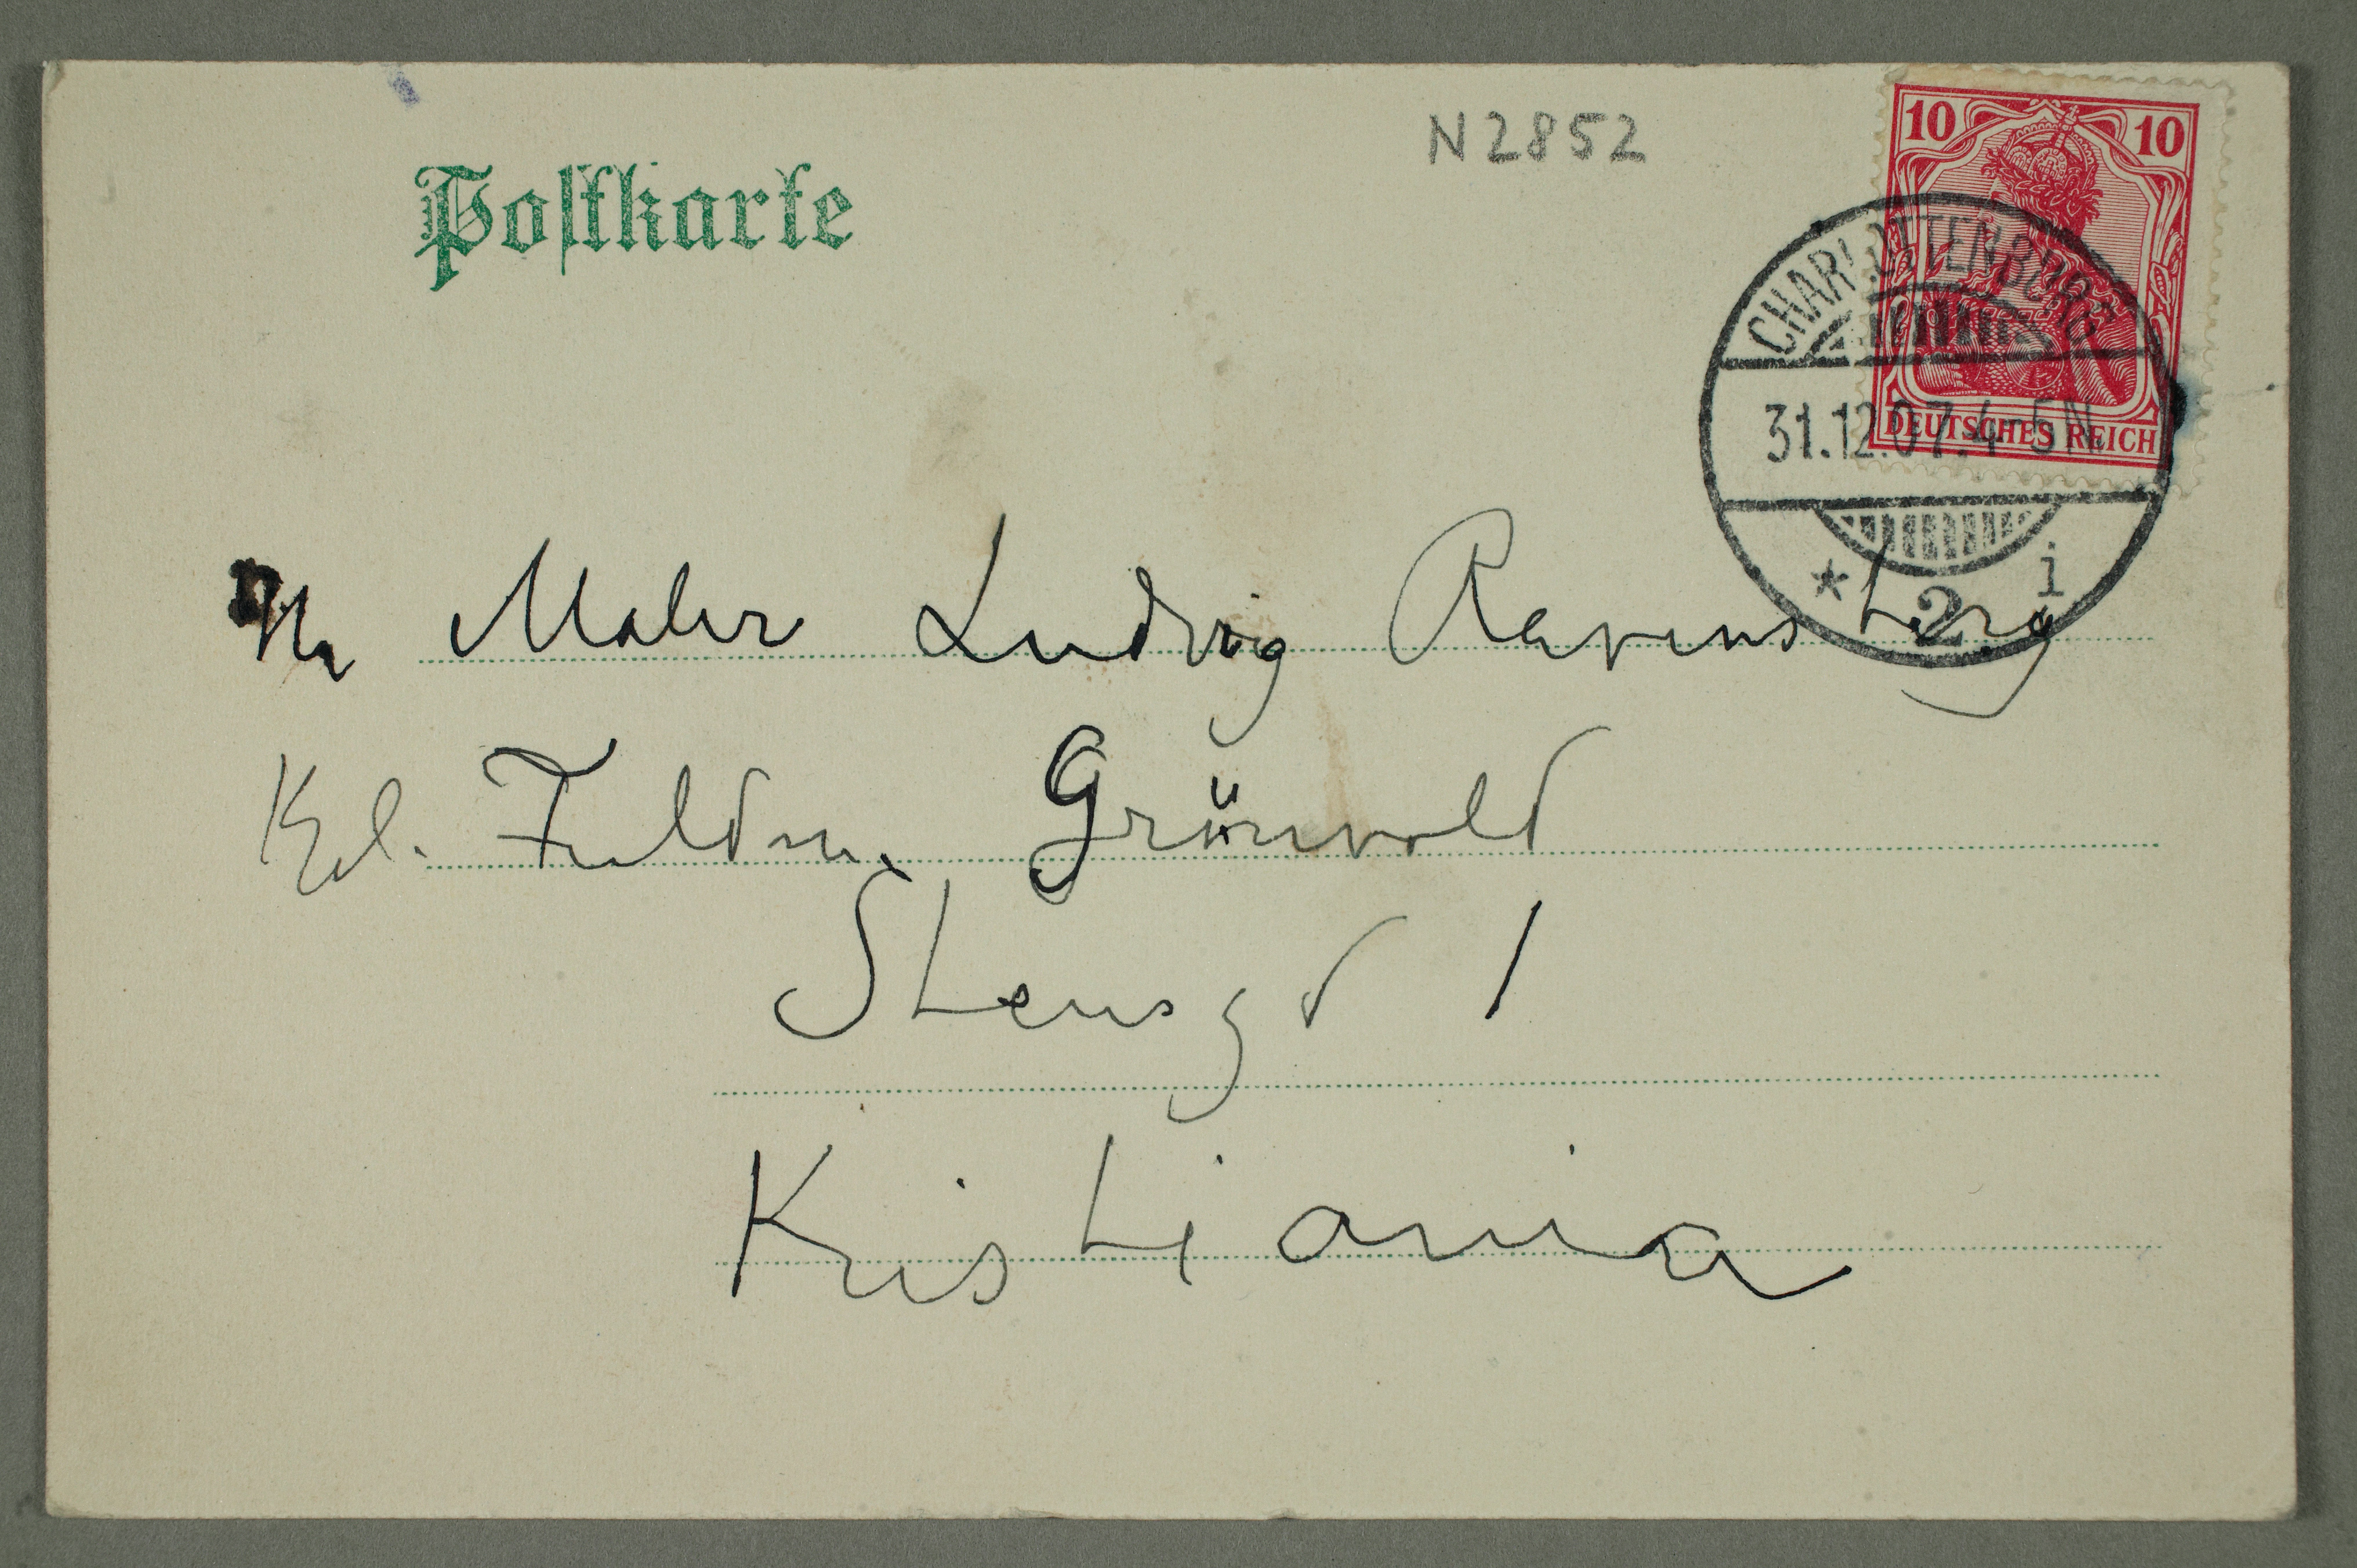 N2852
Postkarte
10 10
DEUTSCHES REICH
CHARLOTTENBURG
31.12.07.4-5N.
* 2 i
Hr Maler Ludvig Ravensberg
Grünvold
Stensgd 1
Kristiania